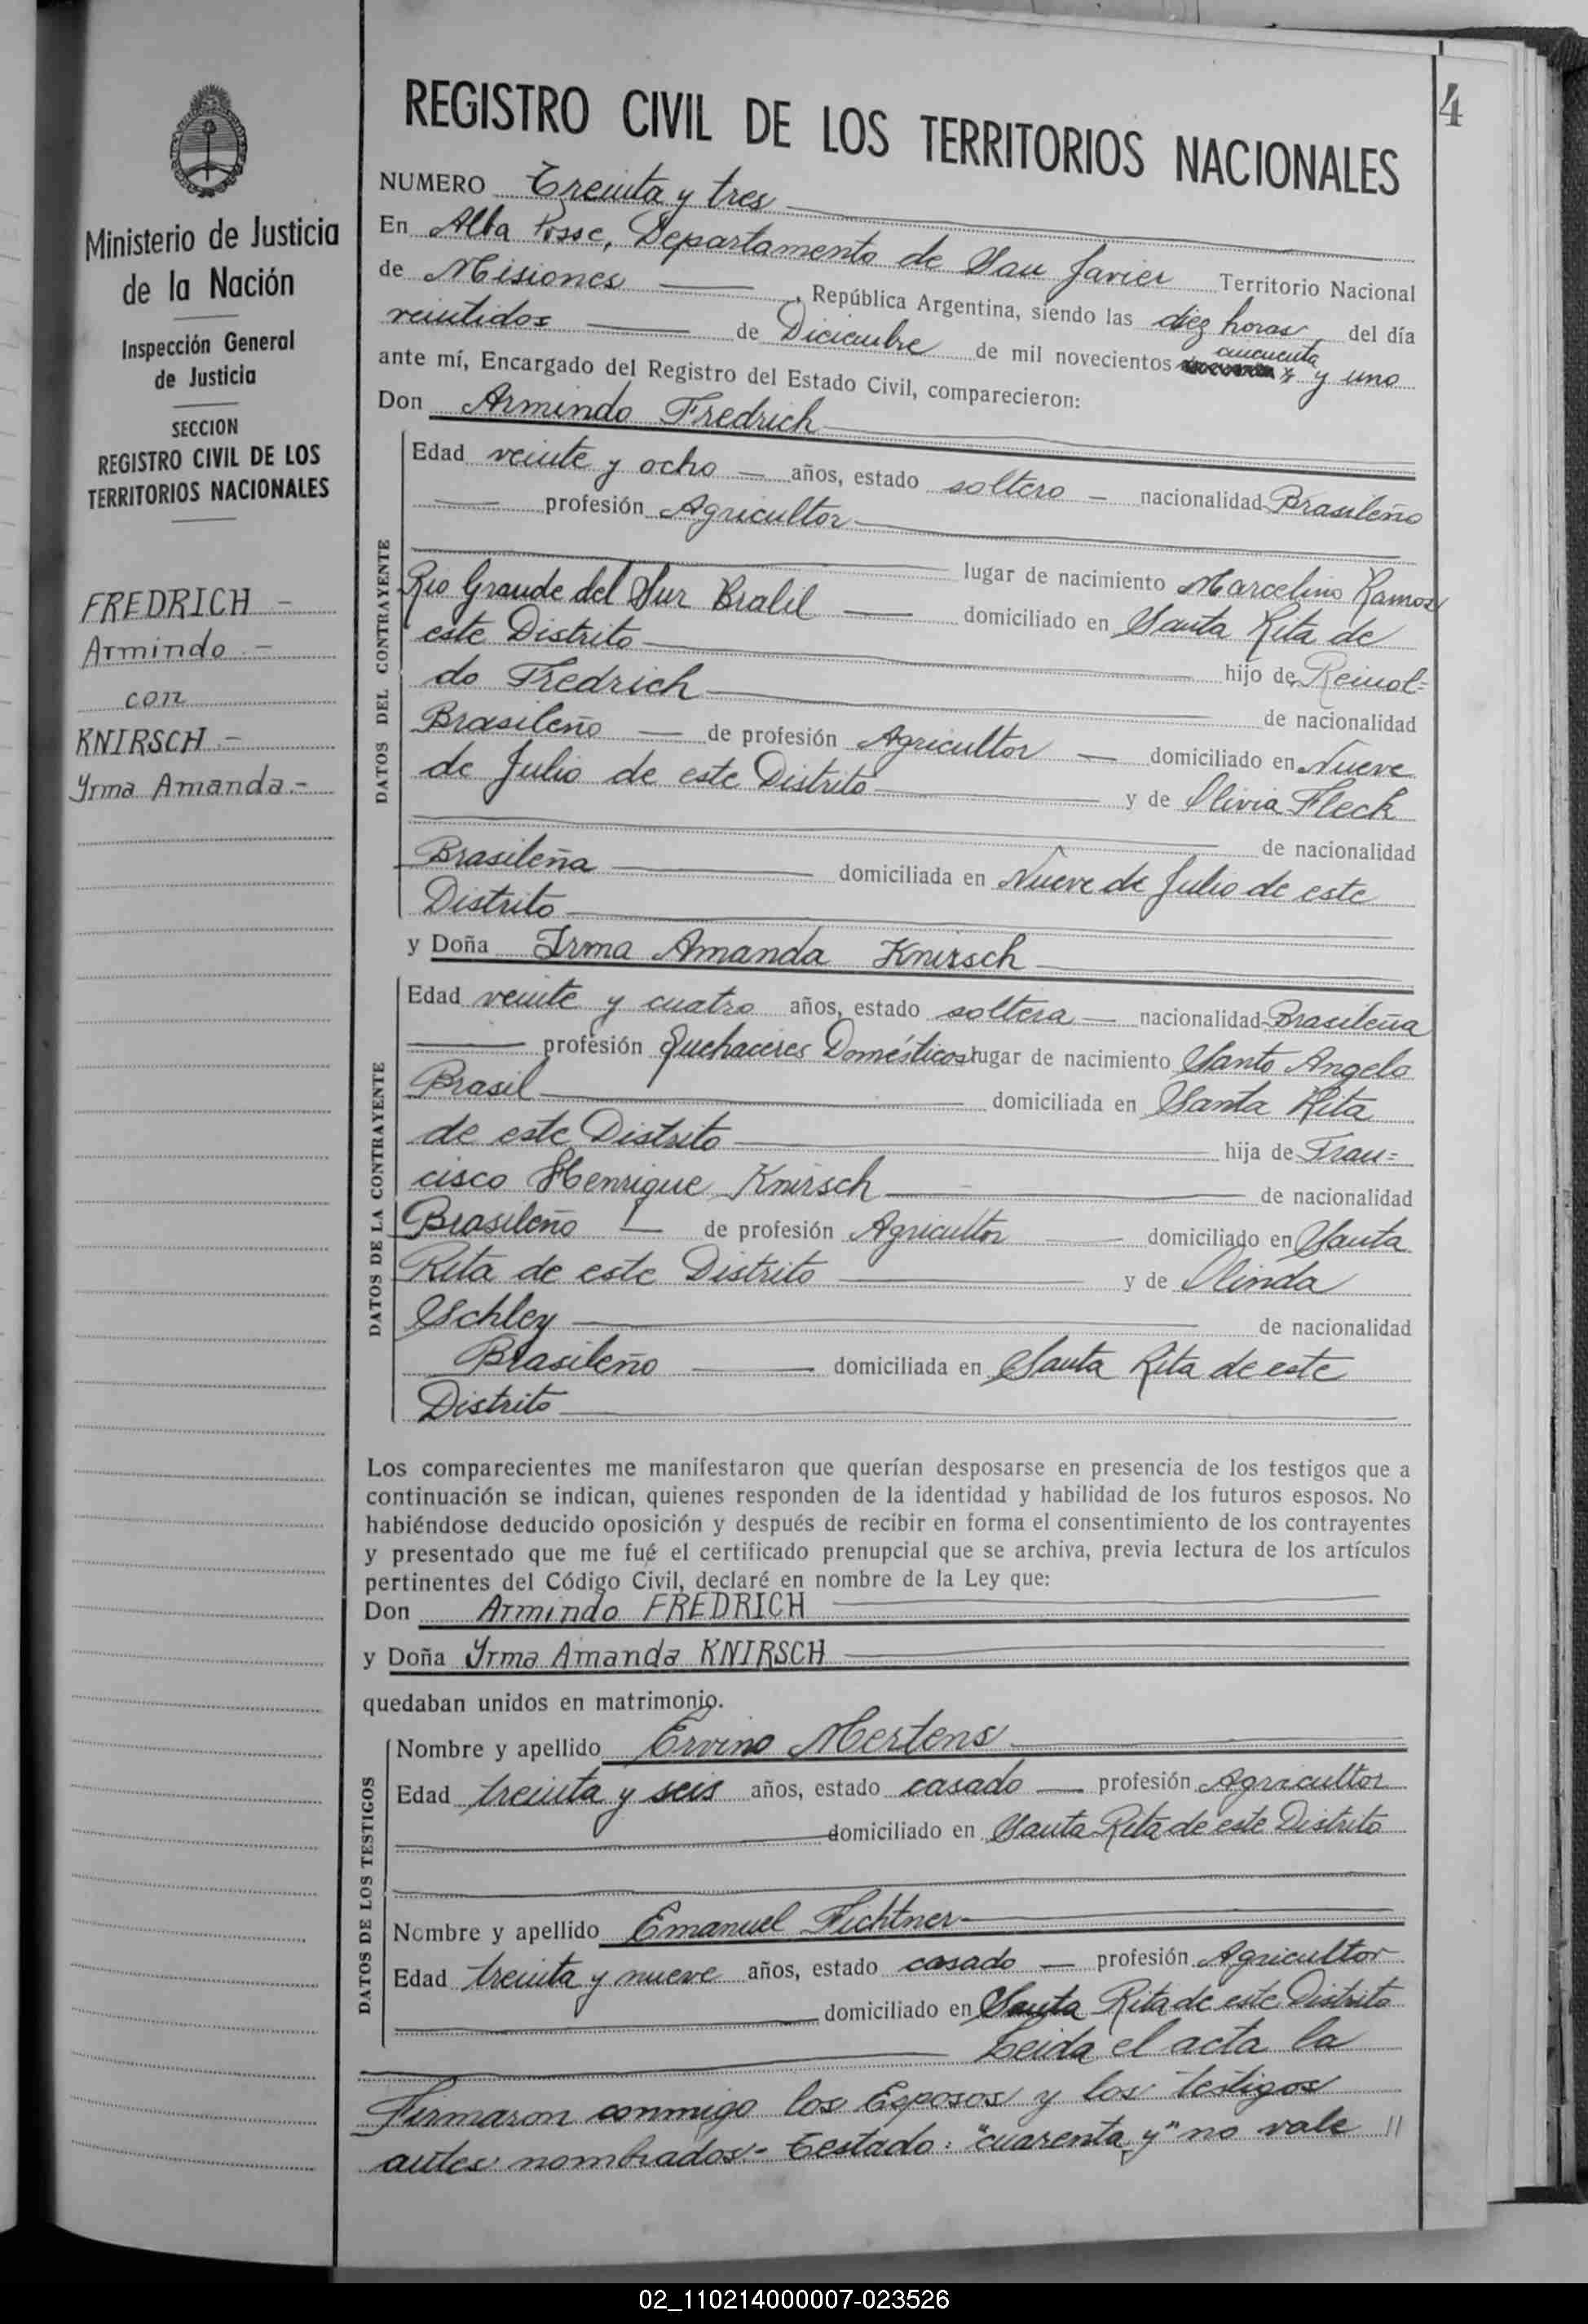 4
REGISTRO CIVIL DE LOS TERRITORIOS NACIONALES
Ministerio de Justicia
de la Nación
Inspección General
de Justicia
SECCION
REGISTRO CIVIL DE LOS
TERRITORIOS NACIONALES
FREDRICH -
Armindo -
con
KNIRSCH -
Yrma Amanda.-
NUMERO Treinta y tres
En Alba Posse, Departamento de San Javier Territorio Nacional
de Misiones, República Argentina, siendo las diez horas del día
veintidos de Diciembre de mil novecientos cincuenta y uno
ante mí, Encargado del Registro del Estado Civil, comparecieron:
Don Armindo Fredrich
DATOS DEL CONTRAYENTE
Edad veinte y ocho años, estado soltero nacionalidad Brasileño
profesión Agricultor
lugar de nacimiento Marcelino Ramos
Rio Grande del Sur Bralil domiciliado en Santa Rita de
este Distrito hijo de Reinol=
do Fredrich de nacionalidad
Brasileño de profesión Agricultor domiciliado en Nueve
de Julio de este Distrito y de Olivia Fleck
de nacionalidad
Brasileña domiciliada en Nueve de Julio de este
Distrito
y Doña Irma Amanda Knirsch
DATOS DE LA CONTRAYENTE
Edad veinte y cuatro años, estado soltera nacionalidad Brasileña
profesión Quehaceres Domésticos lugar de nacimiento Santo Angelo
Brasil domiciliada en Santa Rita
de este Distrito hija de Fran=
cisco Henrique Knirsch de nacionalidad
Brasileño de profesión Agricultor domiciliado en Santa
Rita de este Distrito y de Olinda
Schley de nacionalidad
Brasileño domiciliada en Santa Rita de este
Distrito
Los comparecientes me manifestaron que querían desposarse en presencia de los testigos que a
continuación se indican, quienes responden de la identidad y habilidad de los futuros esposos. No
habiéndose deducido oposición y después de recibir en forma el consentimiento de los contrayentes
y presentado que me fué el certificado prenupcial que se archiva, previa lectura de los artículos
pertinentes del Código Civil, declaré en nombre de la Ley que:
Don Armindo FREDRICH
y Doña Yrma Amanda KNIRSCH
quedaban unidos en matrimonio.
DATOS DE LOS TESTIGOS
Nombre y apellido Ervino Mertens
Edad treinta y seis años, estado casado profesión Agricultor
domiciliado en Santa Rita de este Distrito
Nombre y apellido Emanuel Fichtner
Edad treinta y nueve años, estado casado profesión Agricultor
domiciliado en Santa Rita de este Distrito
Leida el acta la
Firmaron conmigo los Esposos y los testigos
antes nombrados.- Testado: "cuarenta y" no vale //
02_110214000007-023526